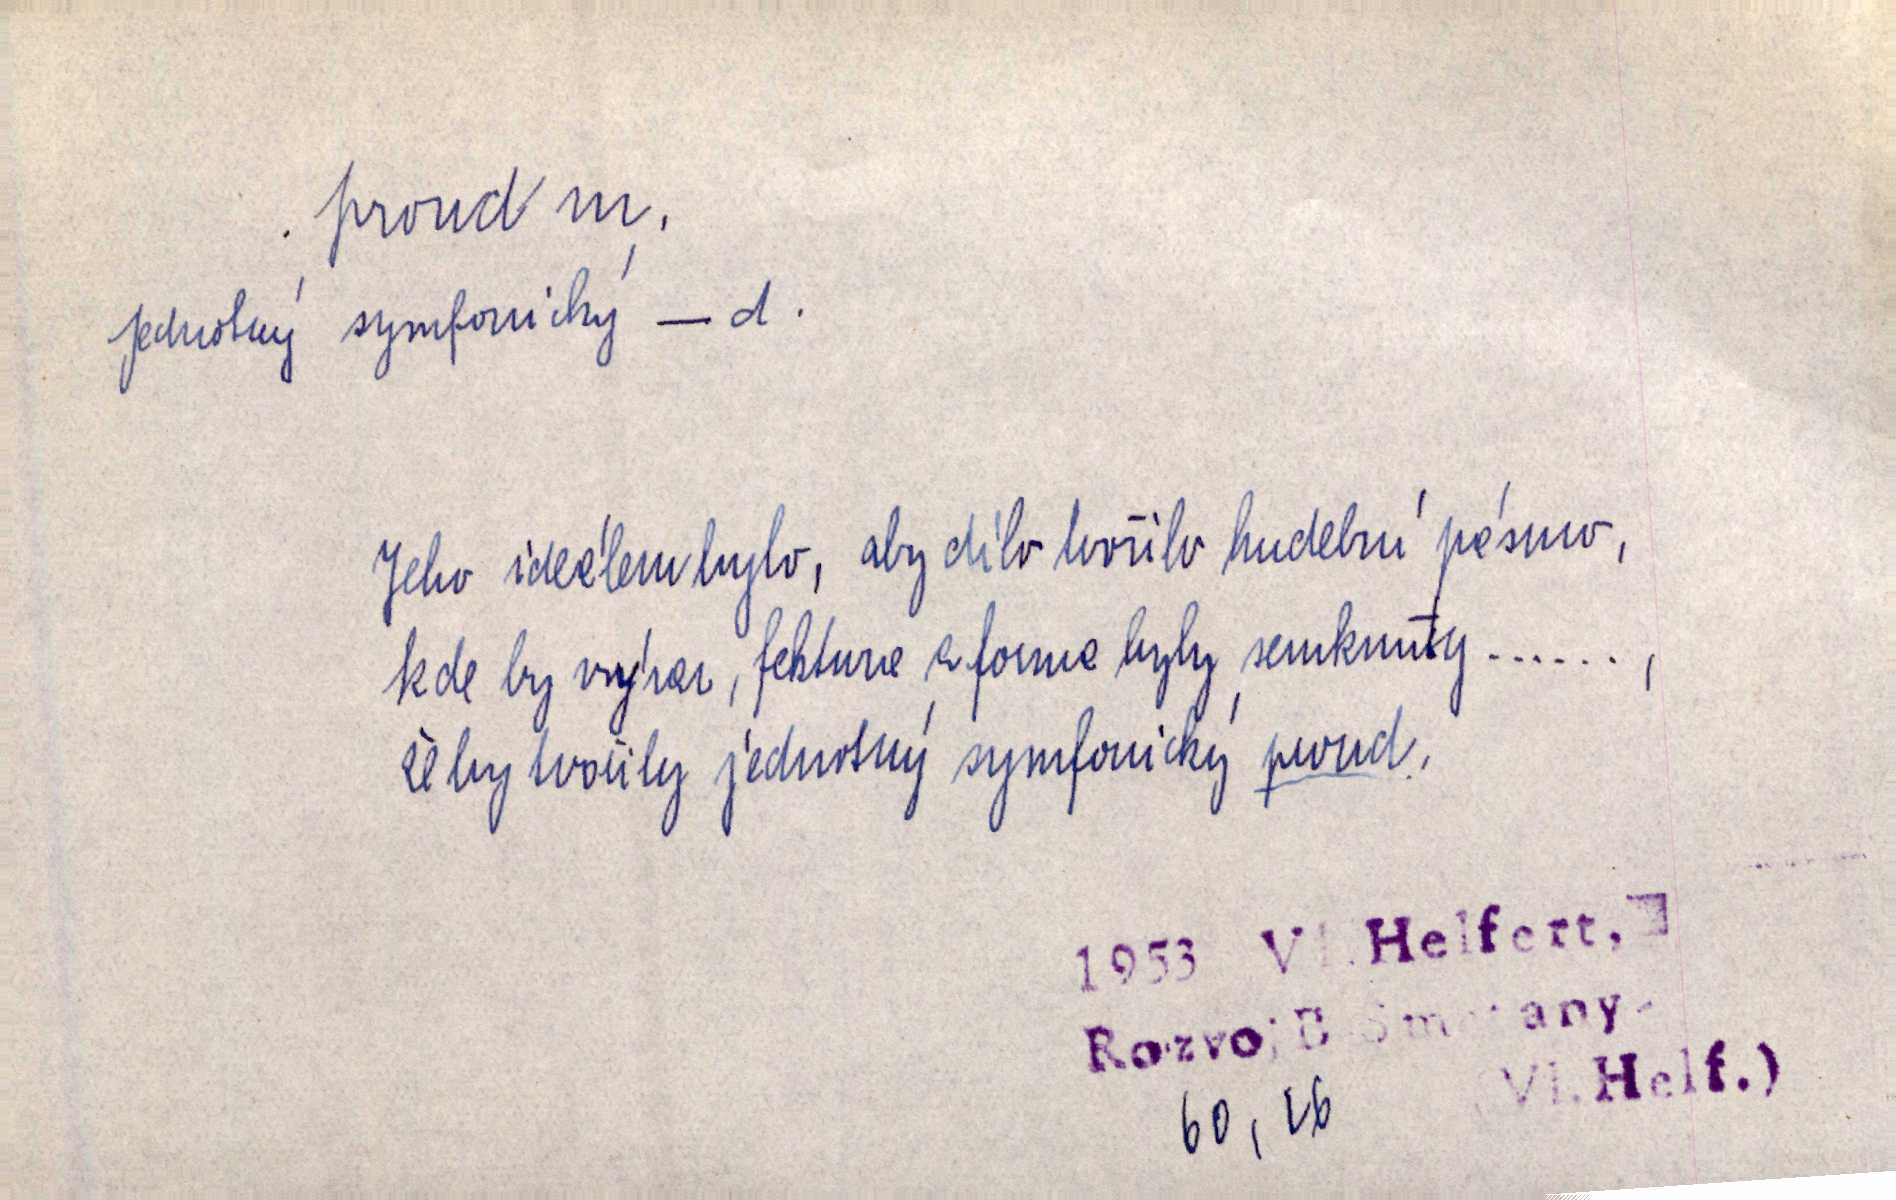 . proud m.
jednotný symfonický — d.
Jeho ideálem bylo, aby dílo tvořilo hudební pásmo,
kde by výraz, faktura a forma byly semknuty ......,
že by tvořily jednotný symfonický proud.
1953 Vl. Helfert,
Rozvoj B Smetany
(Vl. Helf.)
60, 26